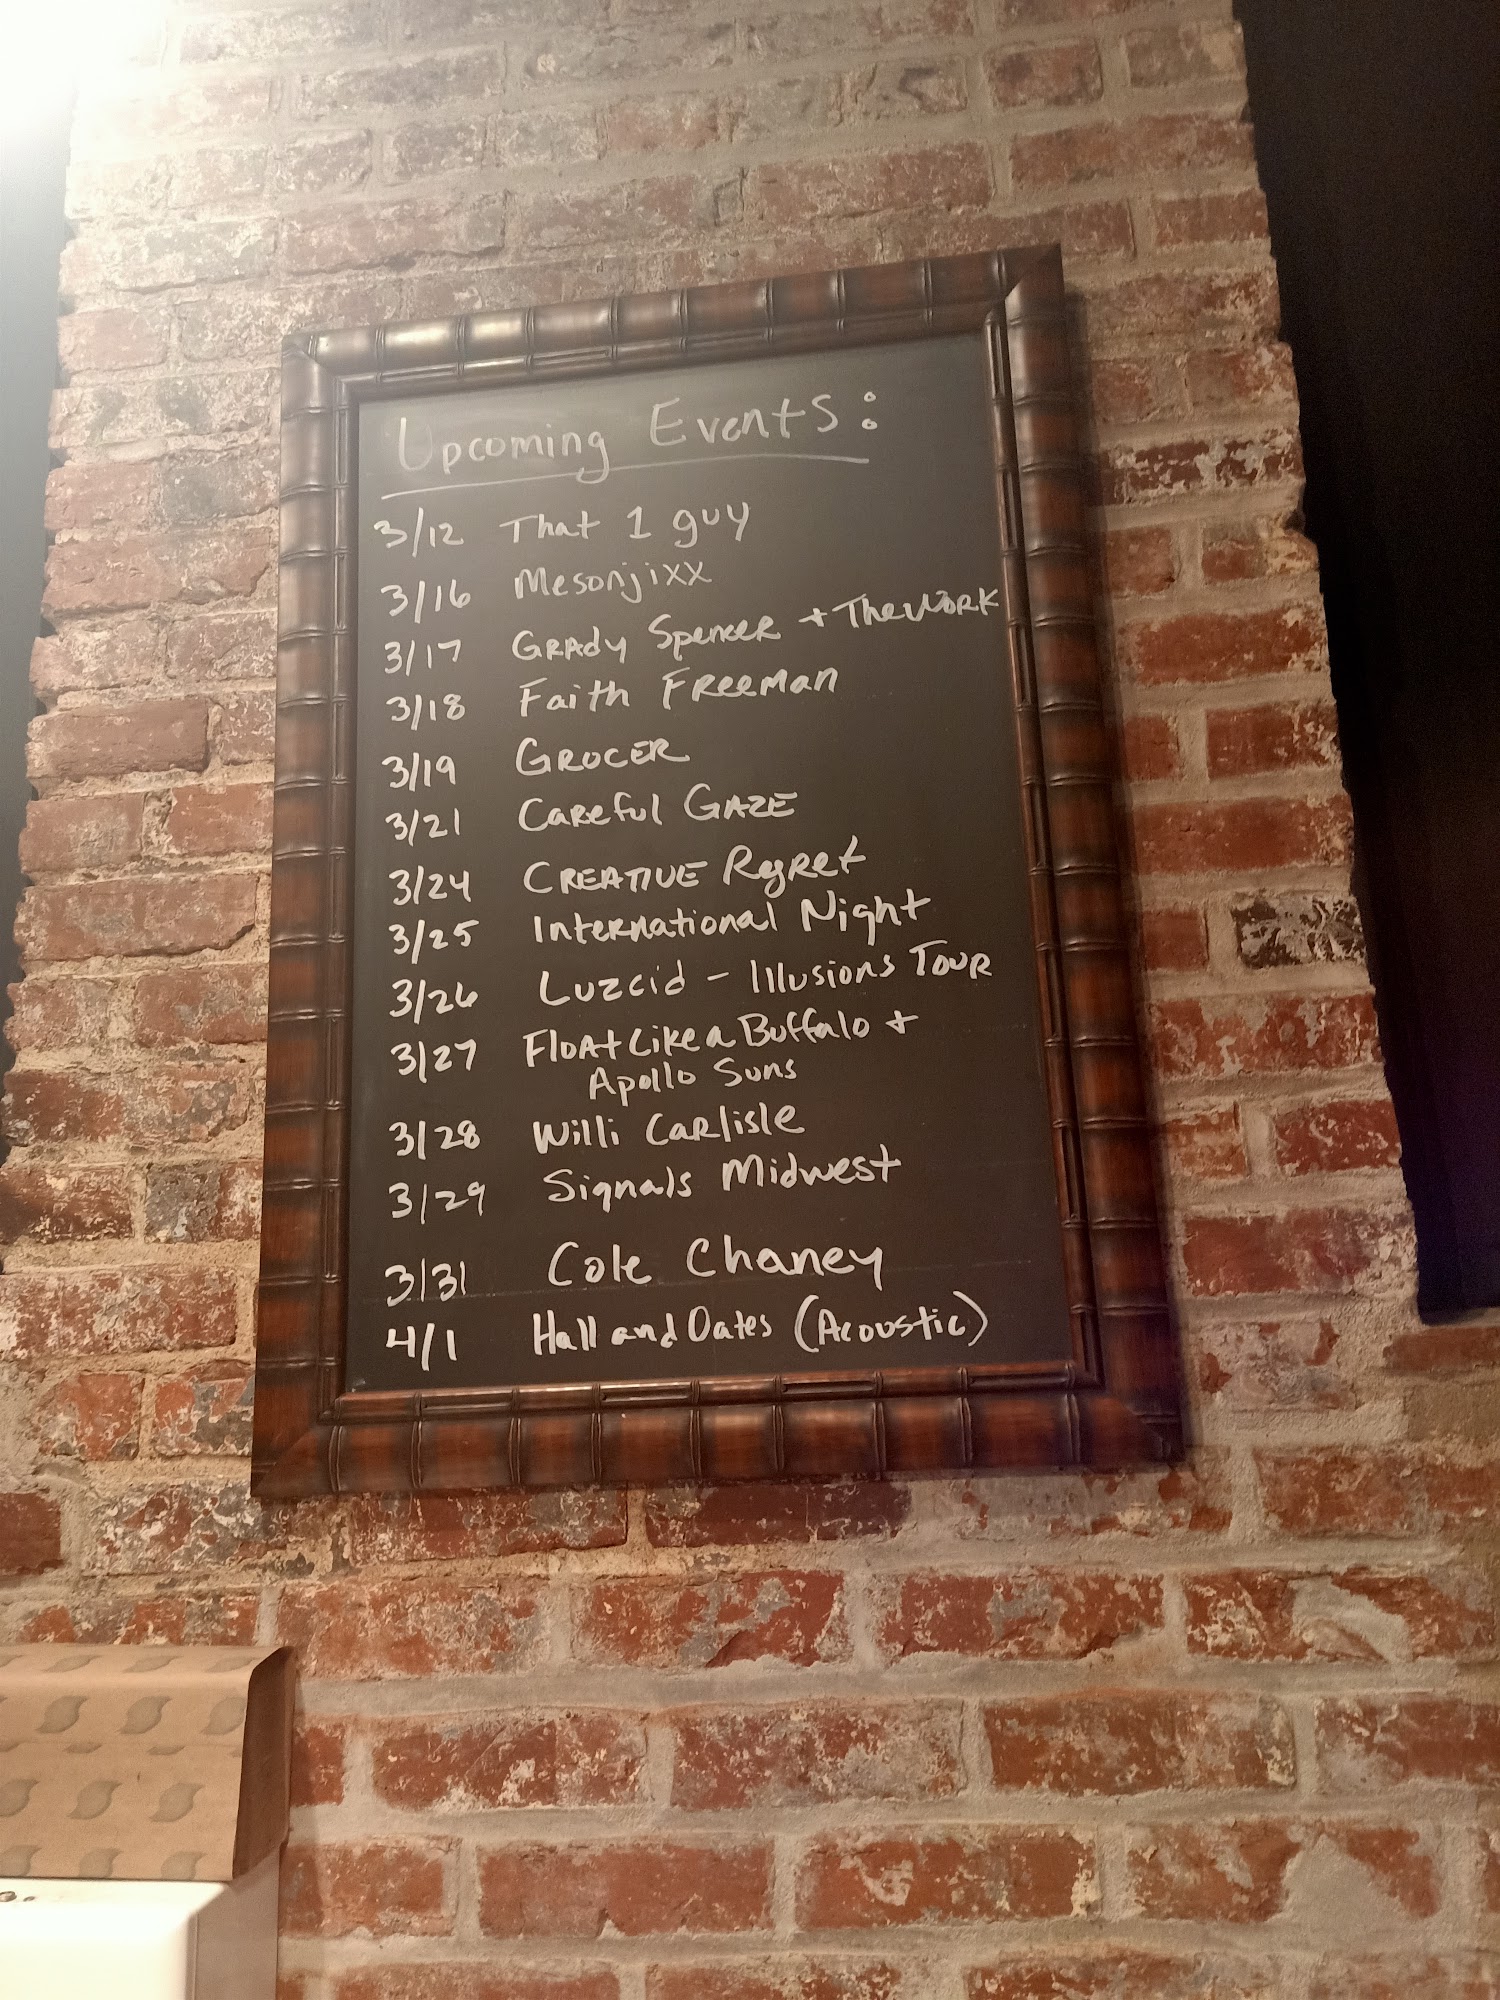 Upcoming Events:
3/12 That 1 guy
3/16 Mesonjixx
3/17 Grady Spencer + The Work
3/18 Faith Freeman
3/19 Grocer
3/21 Careful Gaze
3/24 Creative Regret
3/25 International Night
3/26 Luzcid - Illusions Tour
3/27 Float Like a Buffalo +
Apollo Suns
3/28 Willi Carlisle
3/29 Signals Midwest
3/31 Cole Chaney
4/1 Hall and Oates (Acoustic)